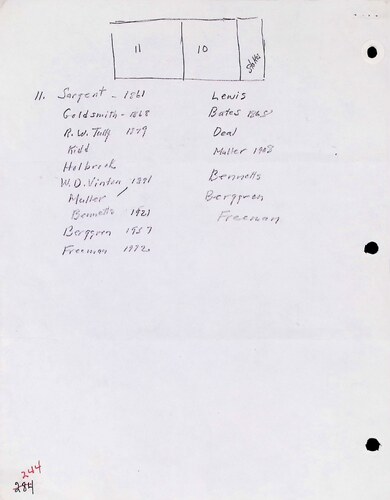 11 10 State
11. Sargent - 1861 Lewis
Goldsmith - 1868 Bates 1868
R.W. Tully 1879 Deal
Kidd Muller 1908
Holbrook
W.D. Vinton 1891 Bennetts
Muller Berggren
Bennetts 1921 Freeman
Berggren 1957
Freeman 1972
244
284